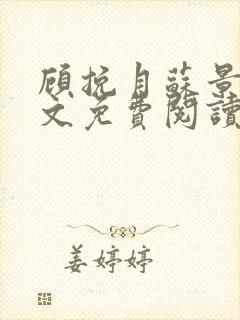 顾挽月蘇景
文免費閱讀
姜婷婷